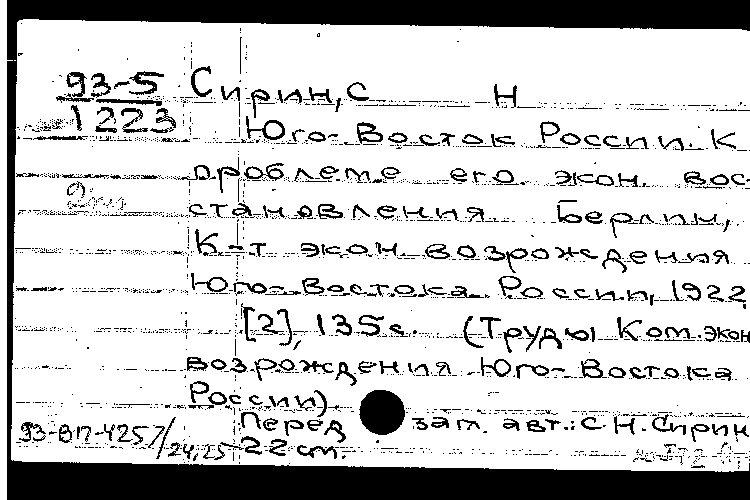 93-5 Сирин, С Н
1223
Юго-Восток России. К
проблеме его экон. вос-
становления Берлин,
К-т экон. возрождения
Юго-Востока России, 1922,
[2], 135с. (Труды Ком. экон
возрождения Юго-Востока
России).
Перед загл. авт.: С Н. Сирин
93-ВП-4257/24,25
22 см.